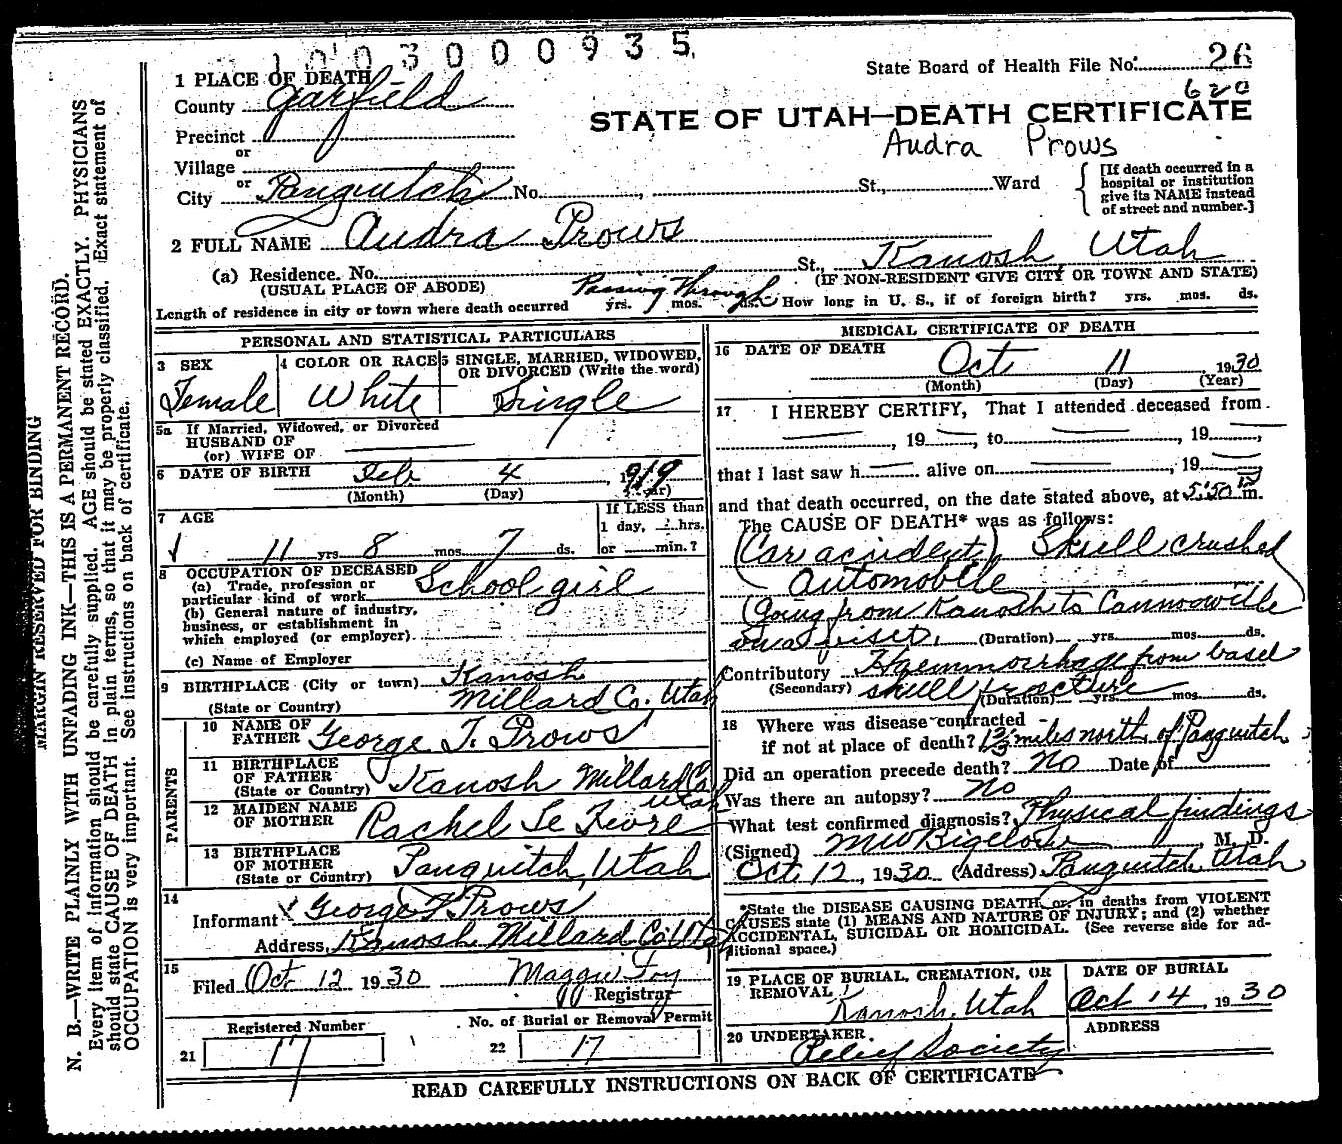 1003000935
State Board of Health File No. 26
620
STATE OF UTAH—DEATH CERTIFICATE
Audra Prows
1 PLACE OF DEATH
County Garfield
Precinct
or
Village
or
City Panguitch No. , St., Ward
[If death occurred in a
hospital or institution
give its NAME instead
of street and number.]
2 FULL NAME Audra Prows
(a) Residence. No. St., Kanosh, Utah
(USUAL PLACE OF ABODE) (IF NON-RESIDENT GIVE CITY OR TOWN AND STATE)
Length of residence in city or town where death occurred Passing Through yrs. mos. ds. How long in U. S., if of foreign birth? yrs. mos. ds.
PERSONAL AND STATISTICAL PARTICULARS
3 SEX
Female
4 COLOR OR RACE
White
5 SINGLE, MARRIED, WIDOWED,
OR DIVORCED (Write the word)
Single
5a If Married, Widowed, or Divorced
HUSBAND OF
(or) WIFE OF
6 DATE OF BIRTH Feb 4, 1919
(Month) (Day) (Year)
7 AGE
11 yrs 8 mos 7 ds.
If LESS than
1 day, hrs.
or min.?
8 OCCUPATION OF DECEASED
(a) Trade, profession or
particular kind of work School girl
(b) General nature of industry,
business, or establishment in
which employed (or employer)
(c) Name of Employer
9 BIRTHPLACE (City or town) Kanosh
(State or Country) Millard Co. Utah
PARENTS
10 NAME OF
FATHER George T. Prows
11 BIRTHPLACE
OF FATHER
(State or Country) Kanosh Millard Co. Utah
12 MAIDEN NAME
OF MOTHER Rachel Le Fevre
13 BIRTHPLACE
OF MOTHER
(State or Country) Panguitch, Utah
14
Informant George T Prows
Address, Kanosh Millard Co. Utah
15
Filed Oct 12 1930 Maggie Foy
Registrar
Registered Number
21 17
No. of Burial or Removal Permit
22 17
MEDICAL CERTIFICATE OF DEATH
16 DATE OF DEATH Oct 11, 1930
(Month) (Day) (Year)
17 I HEREBY CERTIFY, That I attended deceased from
, 19 , to , 19 ,
that I last saw h alive on , 19
and that death occurred, on the date stated above, at 5:50 m.
The CAUSE OF DEATH* was as follows:
(Car accident) Skull crushed
Automobile
(Going from Kanosh to Cannonville
on a visit. (Duration) yrs. mos. ds.
Contributory Haemmorrhage from basel
(Secondary) skull fracture (Duration) yrs. mos. ds.
18 Where was disease contracted
if not at place of death? miles north of Panguitch
Did an operation precede death? No Date of
Was there an autopsy? No
What test confirmed diagnosis? Physical findings
(Signed) M W Bigelow M. D.
Oct. 12, 1930 (Address) Panguitch Utah
*State the DISEASE CAUSING DEATH, or, in deaths from VIOLENT
CAUSES state (1) MEANS AND NATURE OF INJURY; and (2) whether
ACCIDENTAL, SUICIDAL OR HOMICIDAL. (See reverse side for ad-
ditional space.)
19 PLACE OF BURIAL, CREMATION, OR
REMOVAL
Kanosh, Utah
DATE OF BURIAL
Oct 14, 1930
20 UNDERTAKER
Relief Society
ADDRESS
READ CAREFULLY INSTRUCTIONS ON BACK OF CERTIFICATE
MARGIN RESERVED FOR BINDING
N. B.—WRITE PLAINLY WITH UNFADING INK—THIS IS A PERMANENT RECORD.
Every item of information should be carefully supplied. AGE should be stated EXACTLY. PHYSICIANS
should state CAUSE OF DEATH in plain terms, so that it may be properly classified. Exact statement of
OCCUPATION is very important. See instructions on back of certificate.